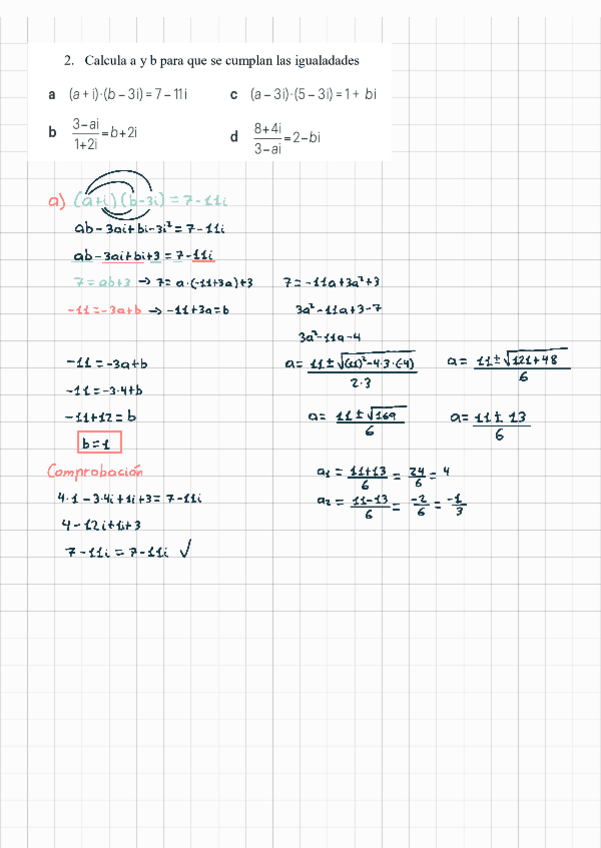 2. Calcula a y b para que se cumplan las igualadades
a (a + i)·(b – 3i) = 7 – 11i
c (a – 3i)·(5 – 3i) = 1 + bi
b (3–ai)/(1+2i) = b+2i
d (8+4i)/(3–ai) = 2–bi
a) (a+i)(b-3i) = 7-11i
ab-3ai+bi-3i² = 7-11i
ab-3ai+bi+3 = 7-11i
7 = ab+3 → 7 = a·(-11+3a)+3
-11 = -3a+b → -11+3a = b
7 = -11a+3a²+3
3a²-11a+3-7
3a²-11a-4
-11 = -3a+b
-11 = -3·4+b
-11+12 = b
b = 1
a = (11 ± √((11)²-4·3·(-4)))/(2·3)
a = (11 ± √(121+48))/6
a = (11 ± √169)/6
a = (11 ± 13)/6
a₁ = (11+13)/6 = 24/6 = 4
a₂ = (11-13)/6 = -2/6 = -1/3
Comprobación
4·1-3·4i+1i+3 = 7-11i
4-12i+1i+3
7-11i = 7-11i ✓